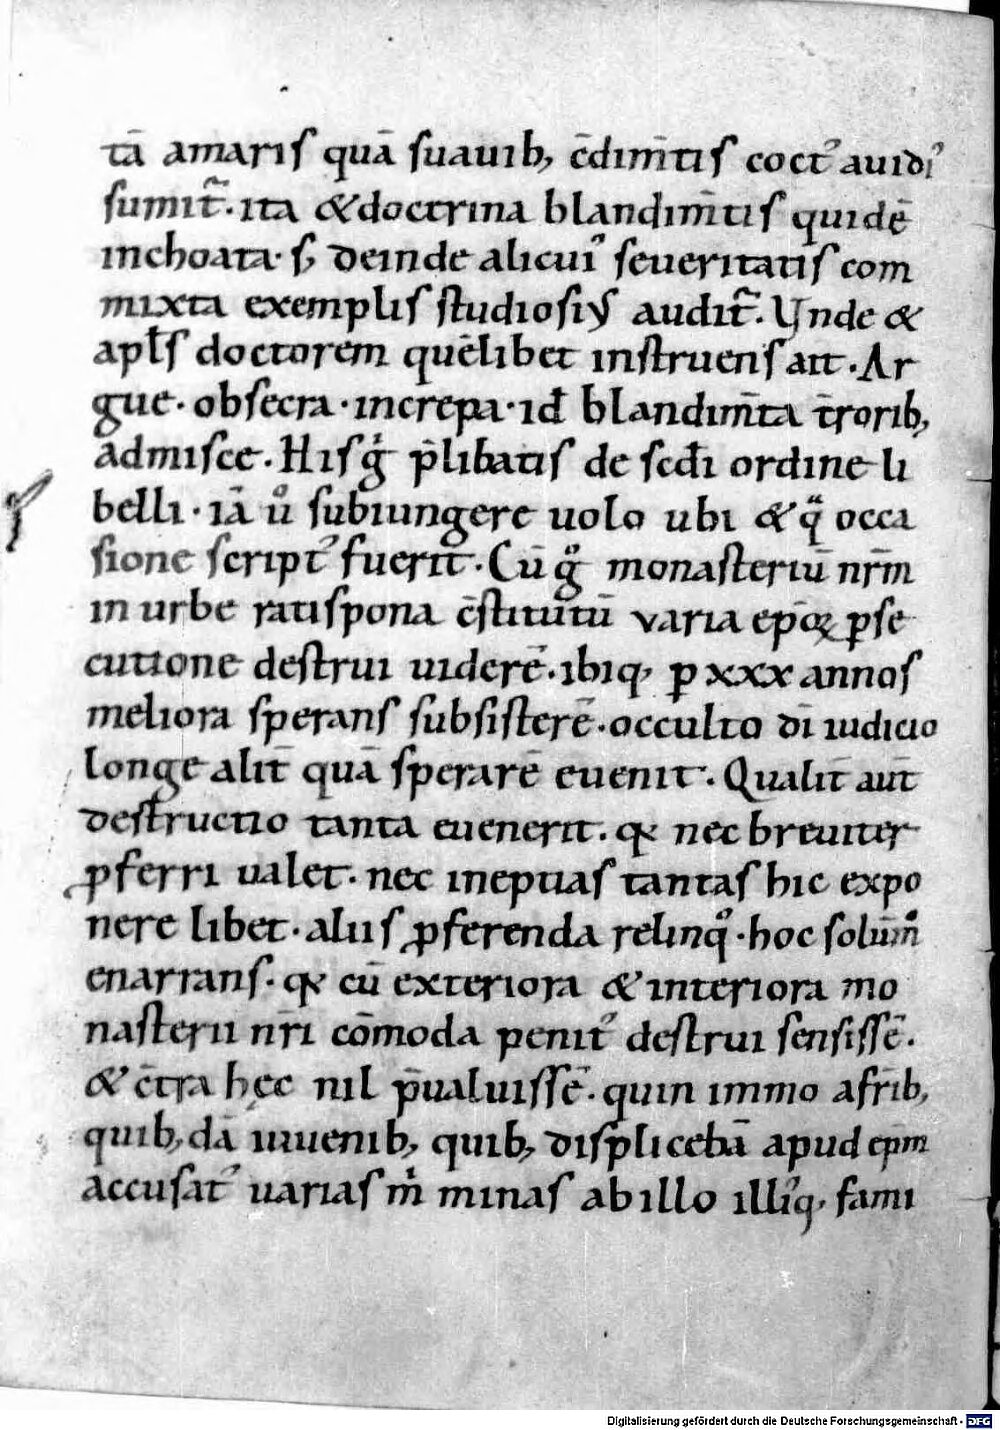 tā amariſ quā ſuauib; c̄dim̄tiſ coctꝰ auidiꝰ
ſumit᷑. ita &doctrina blandim̄tiſ quidē
inchoata· ſꝫ deinde alicuiꝰ ſeueritatiſ com
mixta exempliſ ſtudioſiuſ audit᷑. Unde &
apl̄ſ doctorem quēlibet inſtruenſ ait. Ar
gue· obſecra· increpa· id÷ blandim̄ta t̄rorib;
admiſce. Hiſ gͥ p̄libatiſ de ſcd̄i ordine li
belli· iā uͦ ſubiungere uolo ubi & qͣ occa
ſione ſcriptꝰ fuerit. Cū gͦ monaſteriū nr̄m
in urbe ratiſpona c̄ſtitutū varia ep̄oꝝ ꝑſe
cutione deſtrui uiderē. ibiq; ꝑ xxx annoſ
meliora ſperanſ ſubſiſterē. occulto dī iudicio
longe alit̄ quā ſperarē euenit. Qualit̄ aut̄
deſtructio tanta euenerit. qꝛ nec breuiter
ꝓferri ualet. nec ineptiaſ tantaſ hic expo
nere libet. aliiſ ꝓferenda relinqͦ. hoc ſolūmͦ
enarranſ. qꝛ cū exteriora & interiora mo
naſterii nr̄i cōmoda penitꝰ deſtrui ſenſiſſē.
& c̄tra hęc nil p̄ualuiſſē. quin immo afr̄ib;
quib;dā iuuenib; quib; diſplicebā apud ep̄m
accuſatꝰ uariaſ mͥ minaſ ab illo illiꝰq; fami
Digitalisierung gefördert durch die Deutsche Forschungsgemeinschaft - DFG